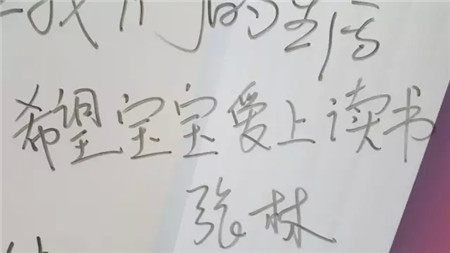 我们的生活
希望宝宝爱上读书
张林